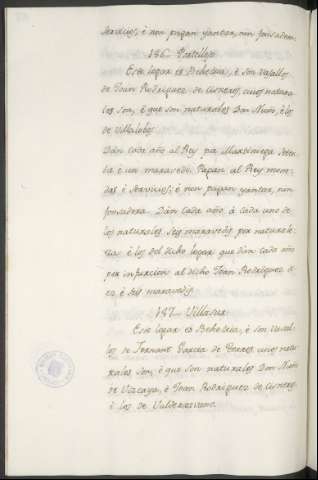 servicios, è non pagan yantar, nin fonsadera.
186. Portillejo
Este logar es Behetria, è son vasallos
de Joan Rodriguez de Cisneros, cuios natura
les son, è que son naturales Don Nuño, è los
de Villalobos.
Dan cada año al Rey por Martiniega seten
ta è un maravedis. Pagan al Rey mone-
das è servicios, è non pagan yantar, nin
fonsadera. Dan cada año à cada uno de
los naturales seis maravedis por naturale-
za: è los del dicho logar que dan cada año
por infurcion al dicho Joan Rodriguez
è seis maravedis
187. Villasur
Este logar es Behetria, è son vasal-
los de Fernant Garcia de
rales son, è que son naturales Don Nuño
de Vizcaya, è Joan Rodriguez de Cisneros,
è los de